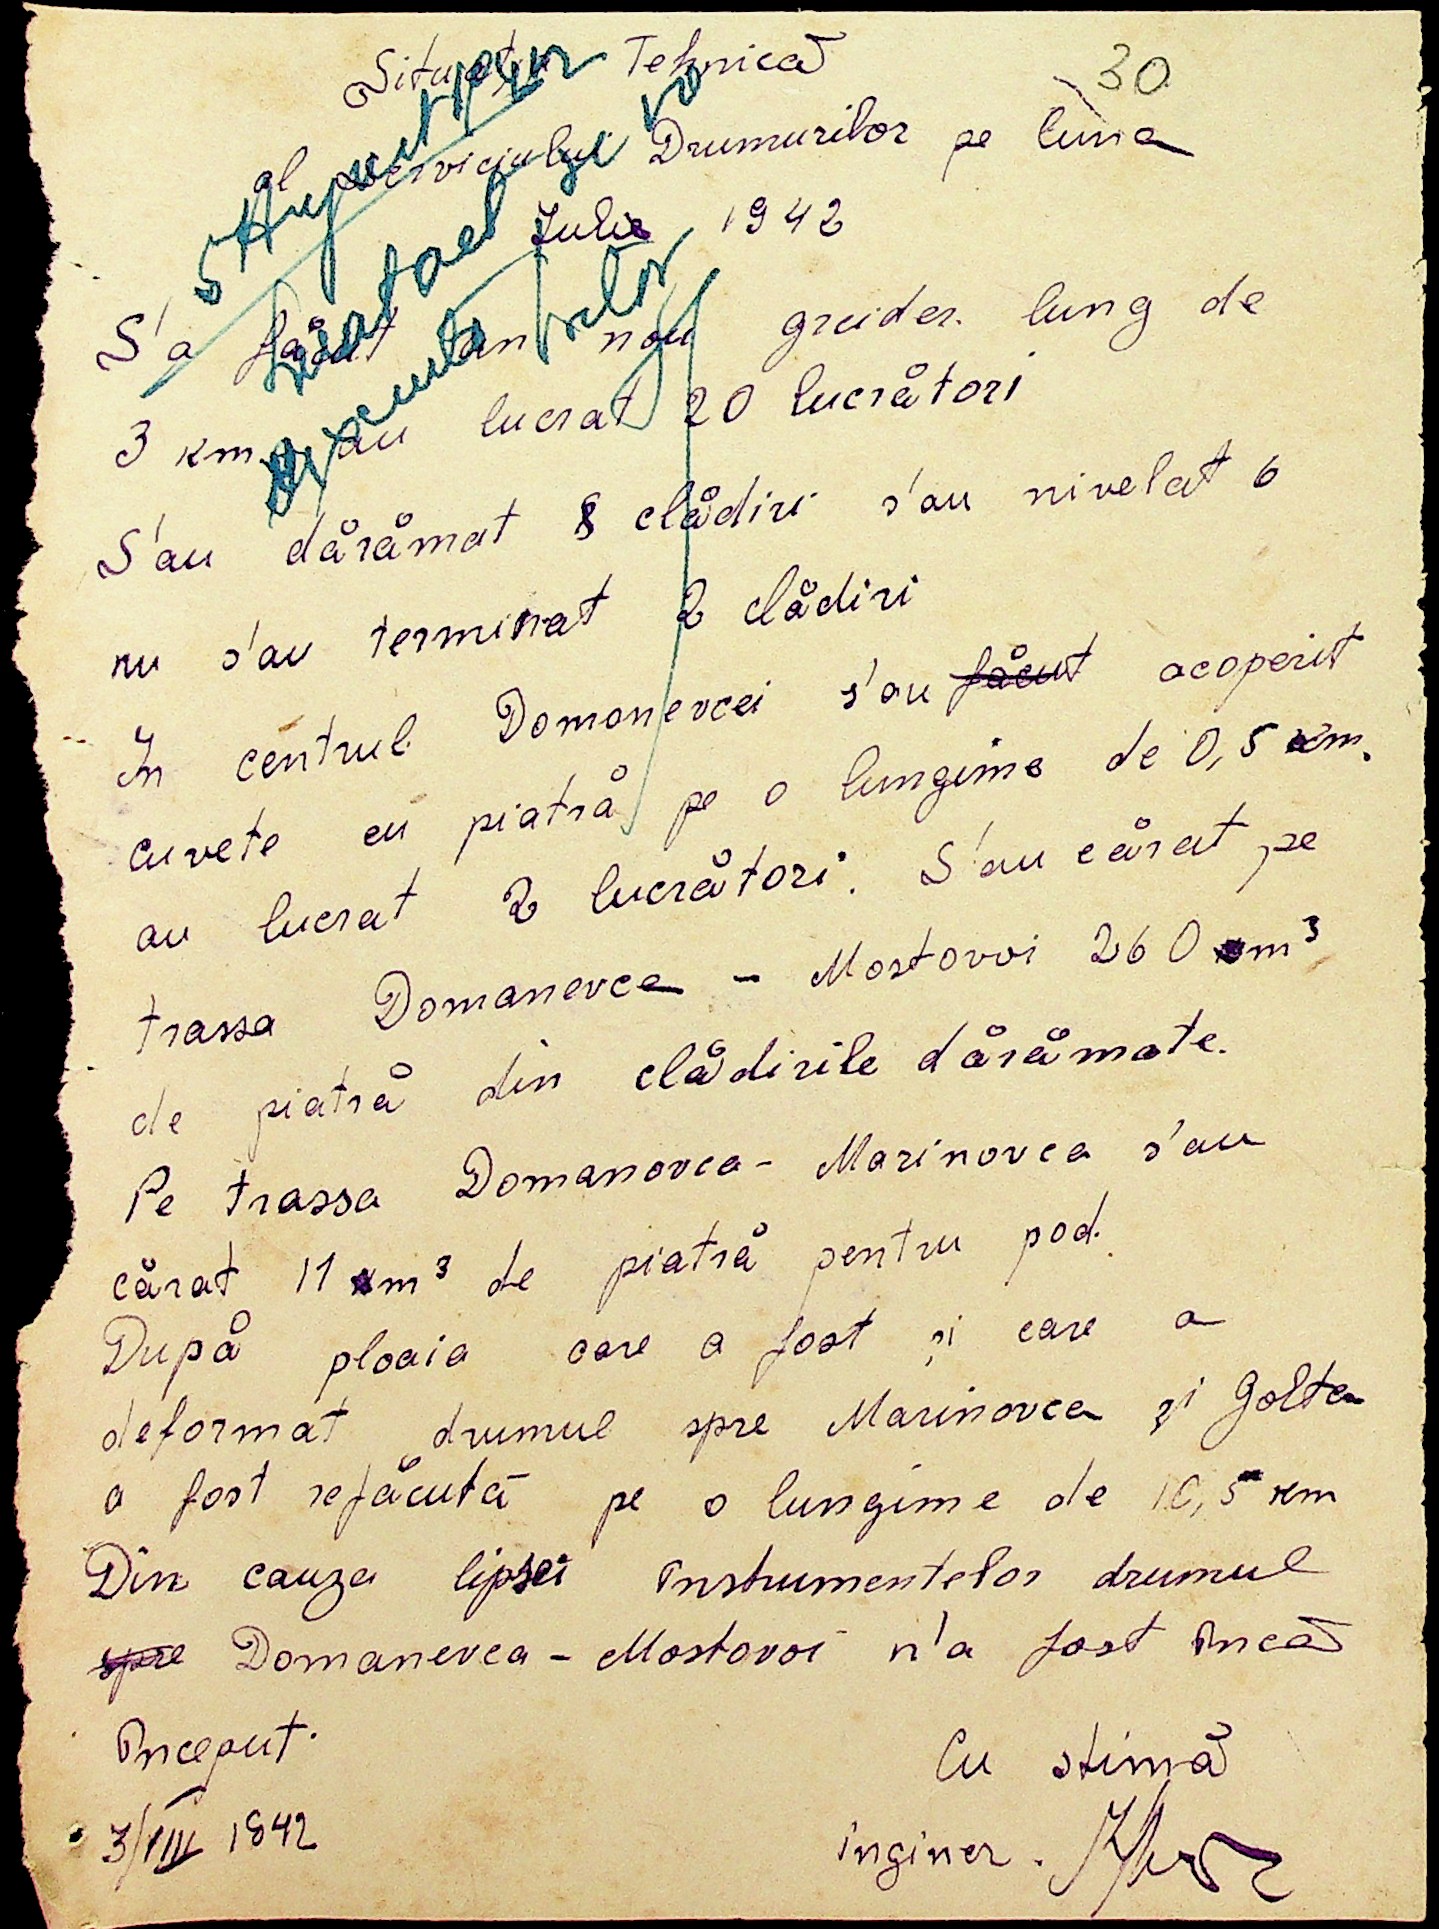 30
Situația Tehnică
al Serviciului Drumurilor pe luna
Iulie 1942
S'a făcut un nou greider lung de
3 km. au lucrat 20 lucrători
S'au dărămat 8 clădiri s'au nivelat 6
nu s'au terminat 2 clădiri
In centrul Domanevcei s'au făcut acoperit
cuvete cu piatră pe o lungime de 0,5 km.
au lucrat 2 lucrători. S'au cărat pe
trassa Domanevca - Mostovoi 260 m³
de piatră din clădirile dărămate.
Pe trassa Domanovca - Marinovca s'au
cărat 11 m³ de piatră pentru pod.
După ploaia care a fost și care a
deformat drumul spre Marinovca și Golta
a fost refăcută pe o lungime de 10,5 km
Din cauza lipsei instrumentelor drumul
spre Domanevca - Mostovoi n'a fost încă
început.
Cu stimă
3/VIII 1842
inginer.